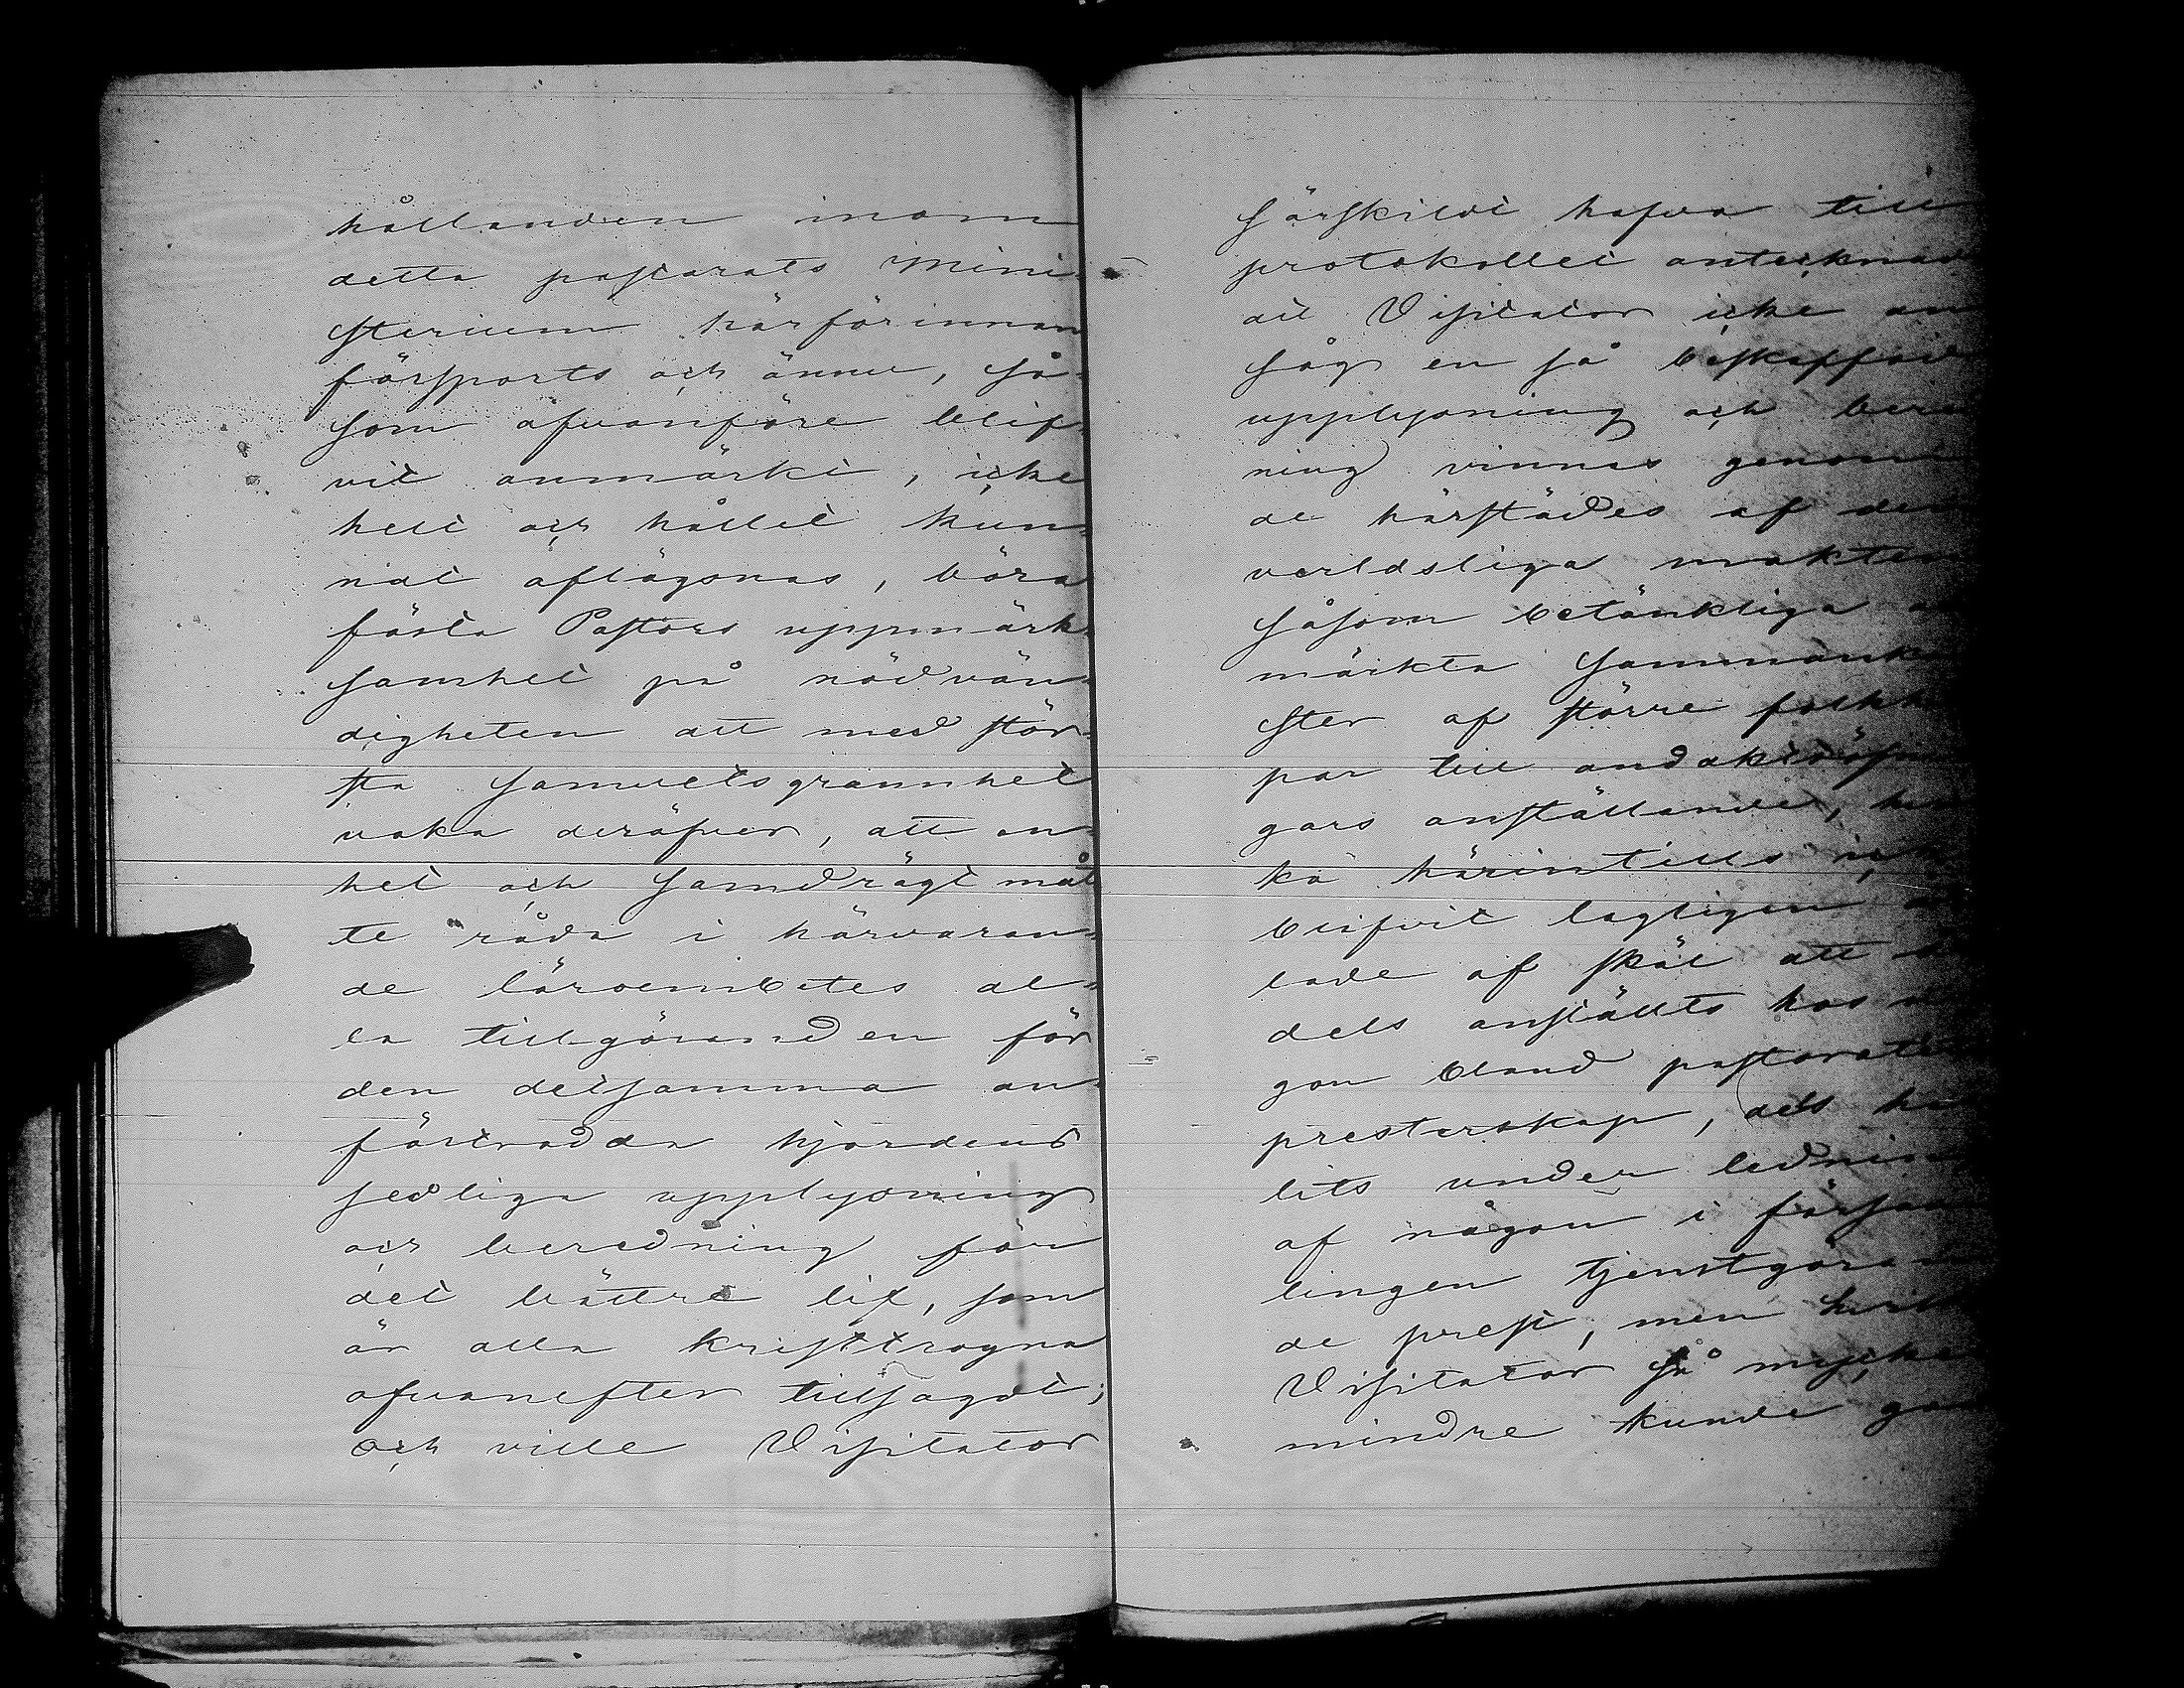 hållanden inom
detta pastorats Mini-
sterium härförinnan
försports och ännu, så-
som ofvanföre blif-
vit anmärkt, icke
helt och hållet kun-
nat aflägsnas, böra
fästa Pastors uppmärk-
samhet på nödvän-
digheten att med stör-
sta samvetsgrannhet
vaka deröfver, att en-
het och samdrägt måt
te råda i härvaran-
de läroembetes al-
la tillgöranden för
den detsamma an-
förtrodda hjordens
sedliga upplysning
och beredning för
det bättre lif, som
är alla kristtrogna
ofvanefter tillsagdt;
och ville Visitator
särskildt hafva till
protokollet antecknad
att Visitator icke an
såg en så beskaffad
upplysning och bere
ning vinnas genom
de härstädes af den
verldsliga makten
såsom betänkliga a
märkta sammank
ster af större folkh
par till andaktsöfni
gars anställande, h
ka härintills ick
blifvit lagligen
lade af skäl att
dels anställts hos
gon bland pastorate
presterskap, dels hå
lits under ledning
af någon i försam
lingen tjenstgöran
de prest, men hvilk
Visitator så mycke
mindre kunde